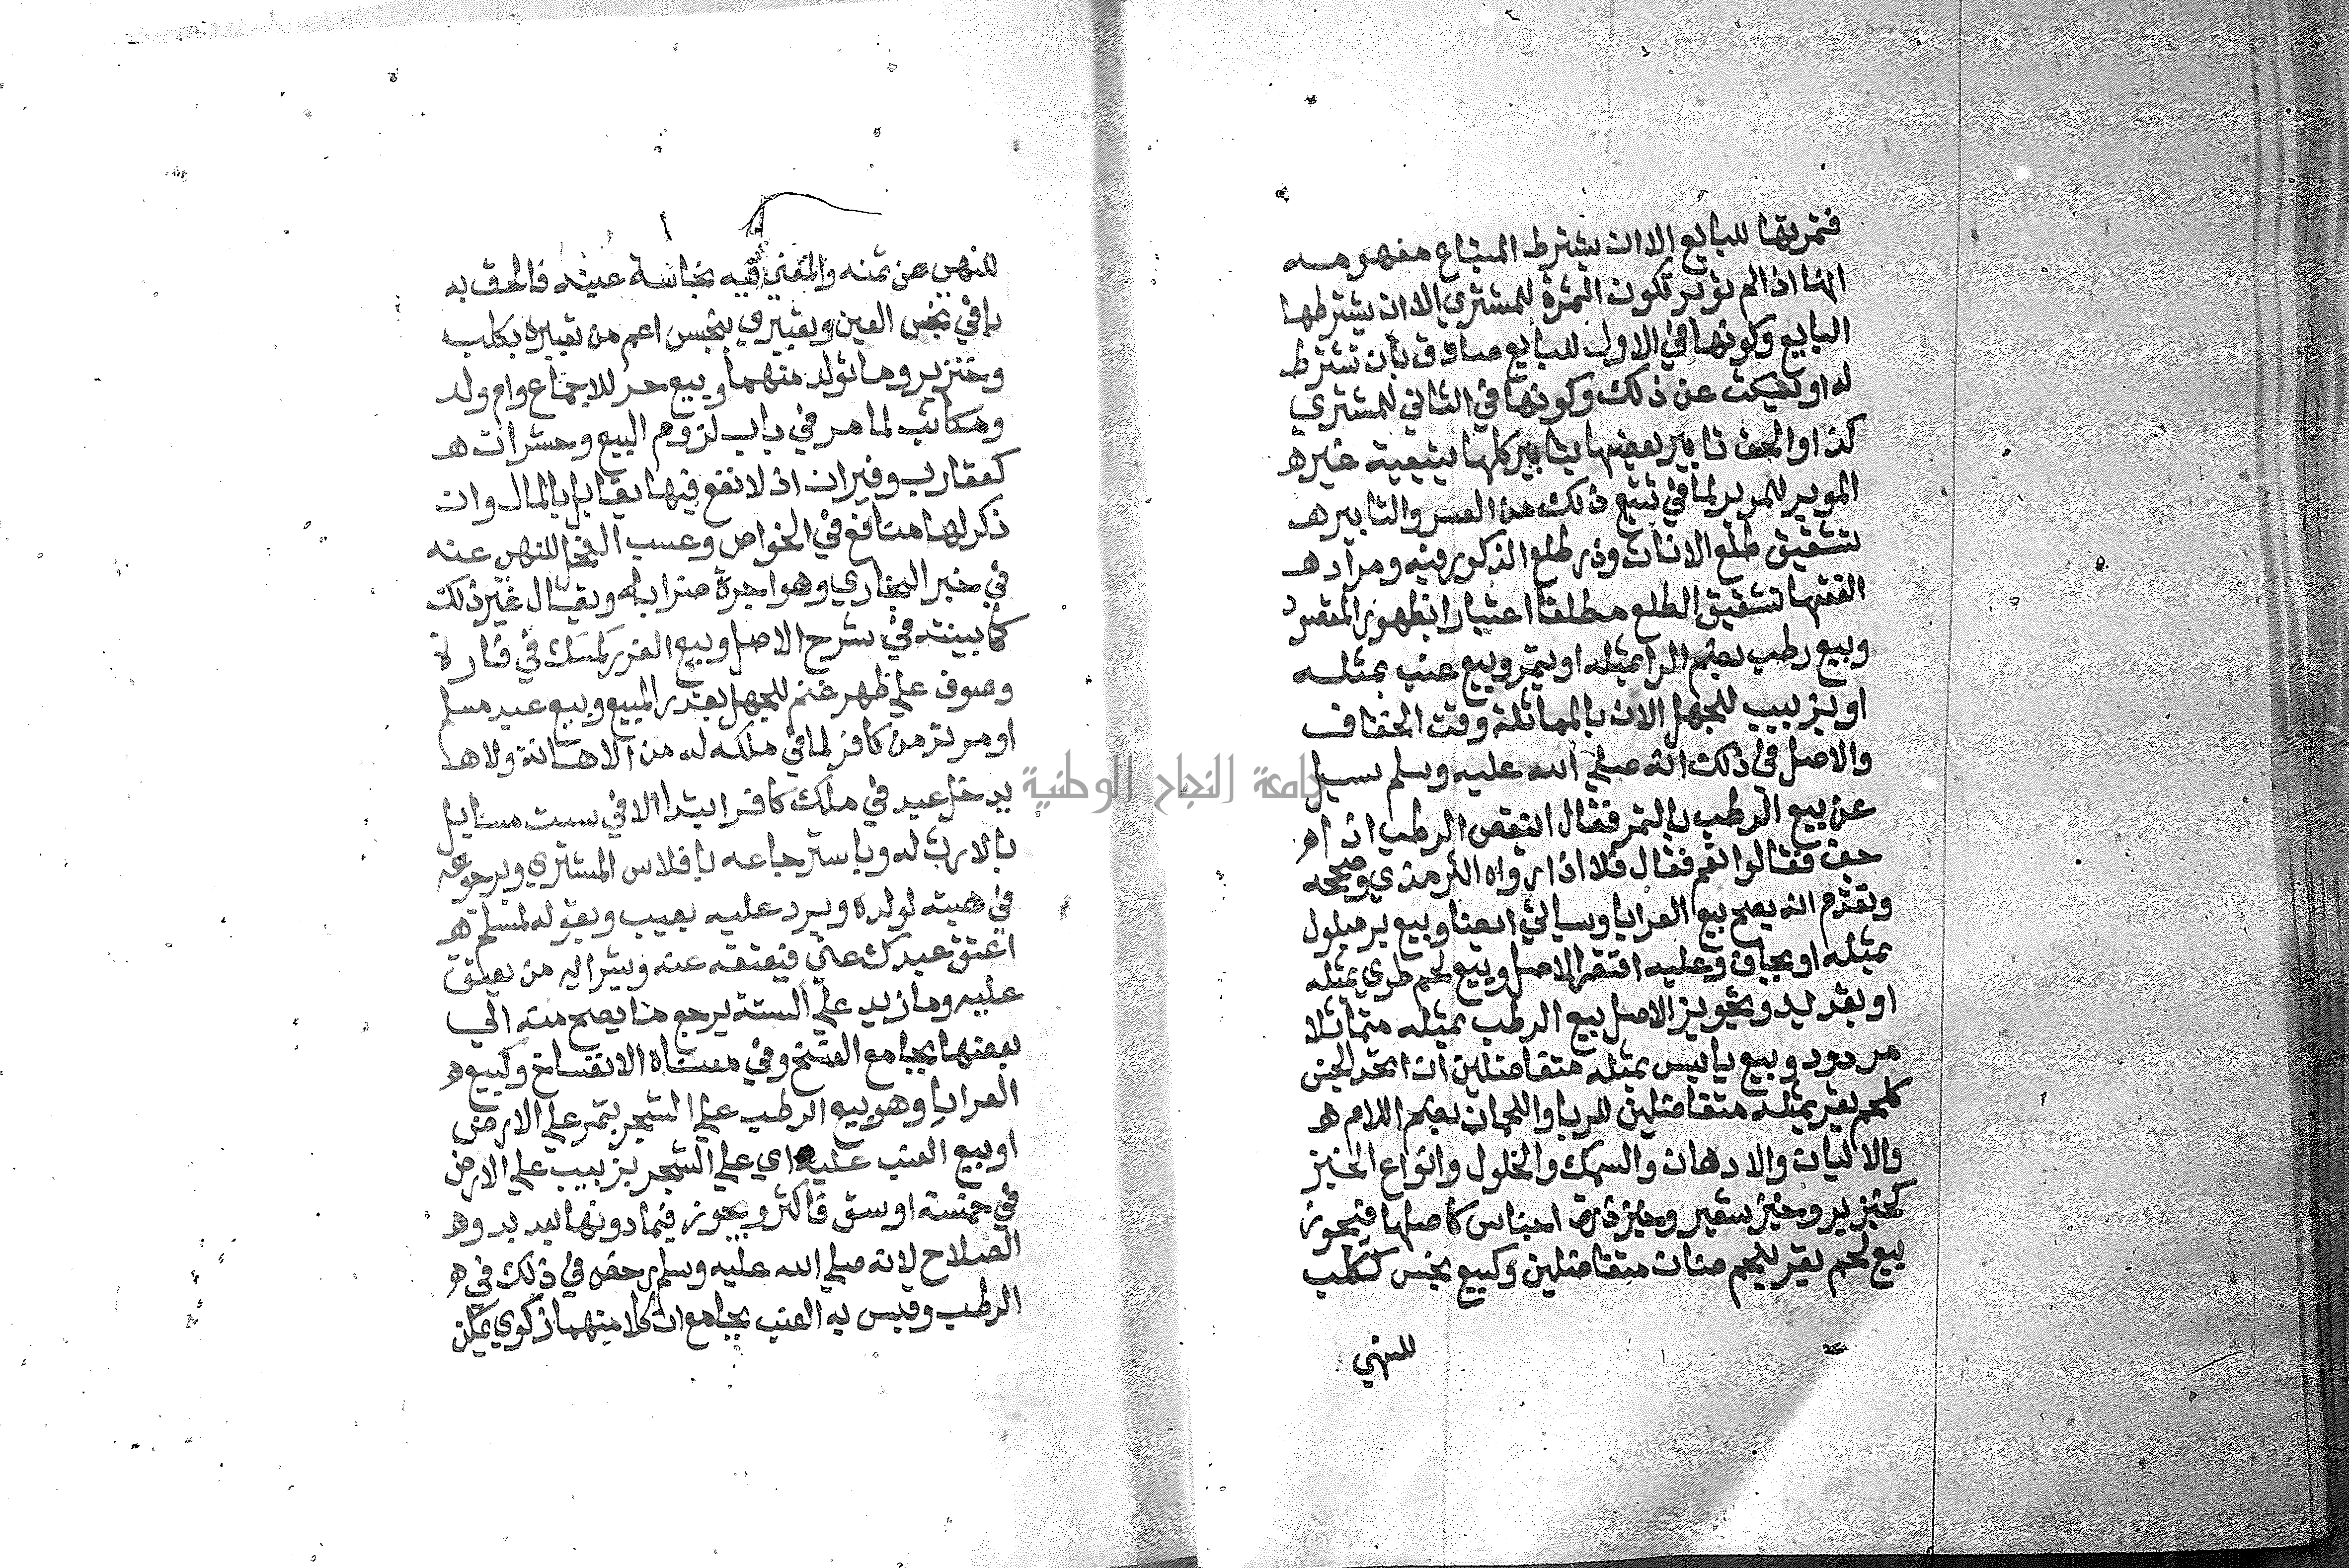 فثمرتها للبايع الا ان يشترط المبتاع مفهومه
انها اذا لم تؤبر تكون الثمرة للمشتري الا ان يشترطها
البايع وكونها في الاول للبايع صادق بان تشترط
له او يسكت عن ذلك وكونها في الثاني للمشتري
كذا والحق تابير بعضها بتابير كلها بتبعية غير ه
الموبر للمربر لما في تتبع ذلك من العسر والتابير ه
لتشقيق طلع الاناث وذر طلع الذكور فيه ومراد ه
الفقها تشقيق الطلع مطلقا اعتبارا بظهور المقصود
وبيع رطب بضم الرا بمثله او بتمر وبيع عنب بمثله
او بزبيب للجهل الان بالمماثلة وقت الجفاف
والاصل في ذلك انه صلي الله عليه وسلم سيل
عن بيع الرطب بالتمر فقال اينقص الرطب اذا
جف فقالوا نعم فقال فلا اذا رواه الترمذي وصححه
وتقدم انه يصح بيع العرايا وسياتي ايضا وبيع بر مبلول
بمثله او بجاف وعليه اقتصر الاصل وبيع لحم طري بمثله
او بقديد وتجويز الاصل بيع الرطب بمثله متماثلا
مردود وبيع يابيس بمثله متفاضلين ان اتحد الجنس
كلحم بقر بمثله متفاضلين للربا واللحمان بضم اللام ه
والاليات والادهان والسمك والخلول وانواع الخبز
كخبز بر وخبز شعير وخبز ذرة اجناس كاصلها فيجوز
بيع لحم بقر بلحم ضان متفاضلين وكبيع نجس ككلب
للنهي
للنهي عن ثمنه والمعني فيه نجاسة عينه فالحق به
باقي نجس العين وتعبيري بنجس اعم من تعبيره بكلب
وخنزير وما تولد منهما وبيع حر للاجماع وام ولد
ومكاتب لما مر في باب لزوم البيع وحشرات ه
كعقارب وفيران اذ لا نفع فيها يقابل بالمال وان
ذكر لها منافع في الخواص وعسب الفحل للنهي عنه
في خبر البخاري وهو اجرة ضرابه ويقال غير ذلك
كما بينته في شرح الاصل وبيع الغرر كمسك في فارة
وصوف علي ظهر غنم للجهل بقدر المبيع وبيع عبد مسلم
او مرتد من كافر لما في ملكه له من الاهانة ولا ها
يدخل عبد في ملك كافر ابتدا الا في ست مسايل
بالارث له وباسترجاعه بافلاس المشتري وبرجوعه
في هبته لولده وبرد عليه بعيب وبقوله لمسلم ه
اعتق عبدك عني فيعتقه عنه وبشرايه من يعتق
عليه وما زيد علي الستة يرجع ما يصح منه الي
بعضها بجامع الفسخ وفي معناه الانفساخ وكبيع ه
العرايا وهو بيع الرطب علي الشجر بتمر علي الارض
او بيع العنب عليه اي علي الشجر بزبيب علي الارض
في خمسة اوسق فاكثر ويجوز فيما دونها بعد بدو ه
الصلاح لانه صلي الله عليه وسلم رخص في ذلك في ه
الرطب وقيس به العنب بجامع ان كلا منهما زكوي يمكن
جامعة النجاح الوطنية